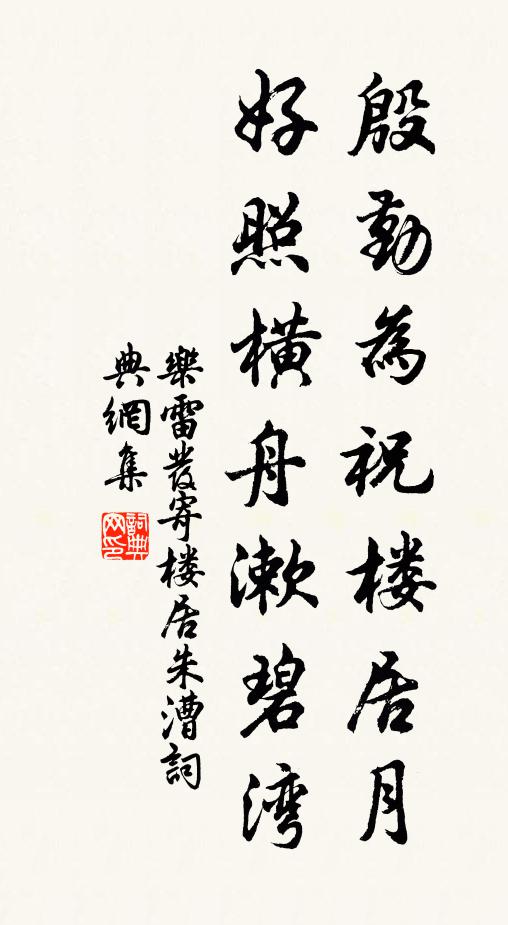 殷勤為祝楼居月
好照橫舟漱碧湾
樂雷發寄楼居朱漕詞
典網集
詞典網印